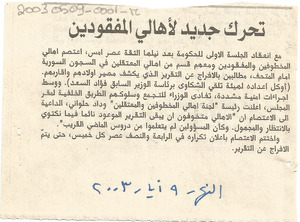 2003 0509-0001-TL
تحرك جديد لأهالي المفقودين
مع انعقاد الجلسة الاولى للحكومة بعد نيلها الثقة عصر امس، اعتصم اهالي
المخطوفين والمفقودين ومعهم قسم من اهالي المعتقلين في السجون السورية
امام المتحف، مطالبين بالافراج عن التقرير الذي يكشف مصير اولادهم واقاربهم.
(اوكل اعداده لهيئة تلقي الشكاوى برئاسة الوزير السابق فؤاد السعد). ووسط
اجراءات امنية مشددة، تفادى الوزراء التجمع وسلوكهم الطريق الخلفية لمقر
المجلس، اعلنت رئيسة "لجنة اهالي المخطوفين والمعتقلين" وداد حلواني، الداعية
الى الاعتصام ان "الاهالي متخوفون ان يبقى التقرير الموعود نائما فيما نكتوي
بالانتظار والمجهول. وكأن المسؤولين لم يتعلموا من دروس الماضي القريب".
واختتم الاعتصام باعلان تكراره في الرابعة والنصف عصر كل خميس، حتى يتم
الافراج عن التقرير.
النهار ٩ أيار ٢٠٠٣